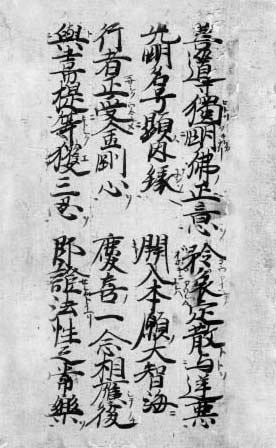 善導獨明佛正意 矜哀定散与逆悪
光明名号顕因縁 開入本願大智海
行者正受金剛心 慶喜一念相應後
與韋提等獲三忍 即證法性之常樂